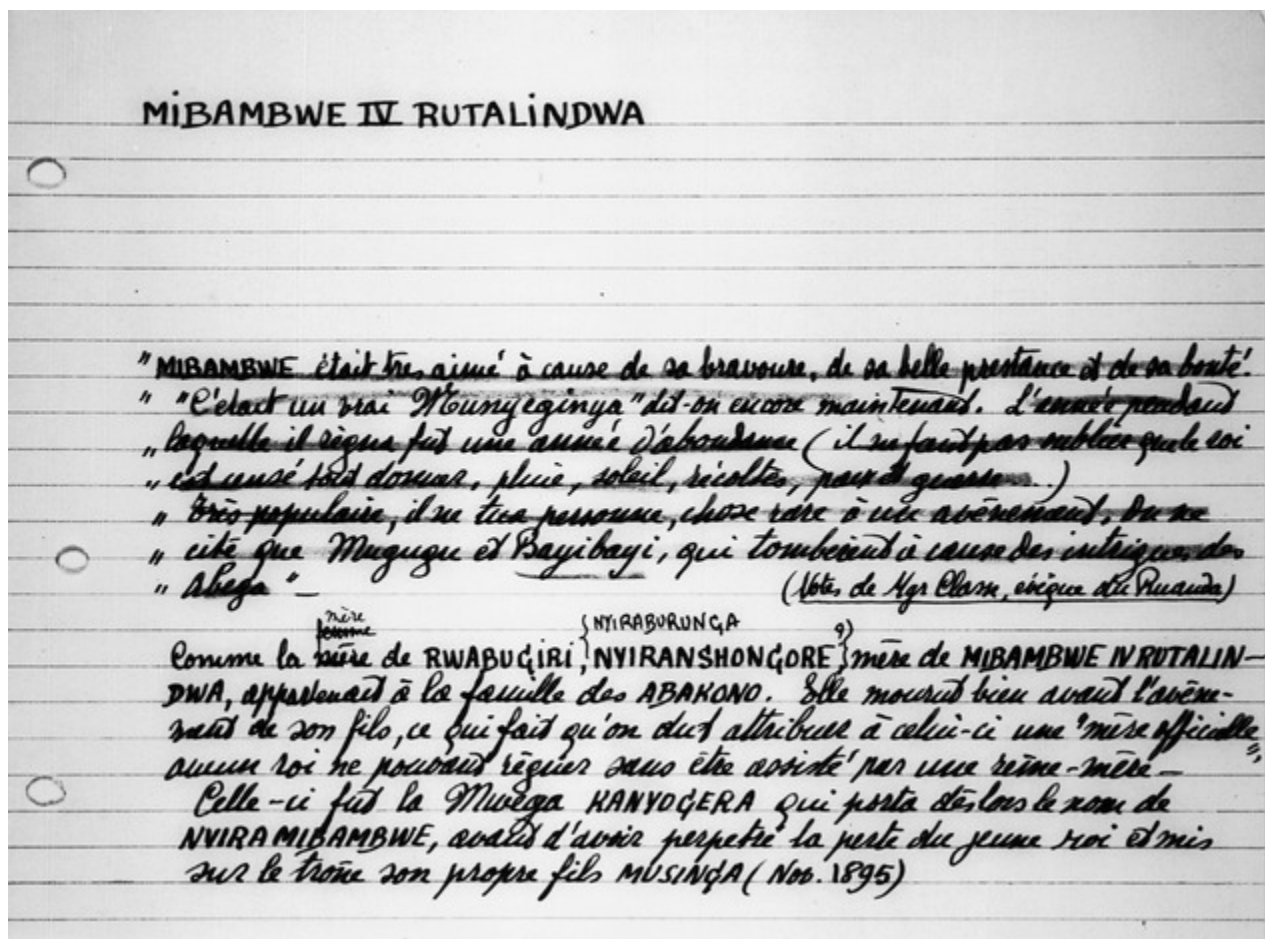 MIBAMBWE IV RUTALINDWA
" MIBAMBWE était très aimé à cause de sa bravoure, de sa belle prestance et de sa bonté.
" "C'était un vrai Munyeginya" dit-on encore maintenant. L'année pendant
" laquelle il régna fut une année d'abondance (il ne faut pas oublier que le roi
" est censé tout donner, pluie, soleil, récoltes, paix et guerre...)
" Très populaire, il ne tua personne, chose rare à un avènement. On ne
" cite que Mugugu et Bayibayi, qui tombèrent à cause des intrigues des
" Abega" —
(Notes de Mgr Classe, évêque du Ruanda)
mère
femme
{NYIRABURUNGA
Comme la mère de RWABUGIRI, NYIRANSHONGORE } mère de MIBAMBWE IV RUTALIN-
DWA, appartenait à la famille des ABAKONO. Elle mourut bien avant l'avène-
ment de son fils, ce qui fait qu'on dut attribuer à celui-ci une "mère officielle",
aucun roi ne pouvant régner sans être assisté par une reine-mère —
Celle-ci fut la Mwega KANYOGERA qui porta dès lors le nom de
NYIRAMIBAMBWE, avant d'avoir perpétré la perte du jeune roi et mis
sur le trône son propre fils MUSINGA (Nov. 1895)